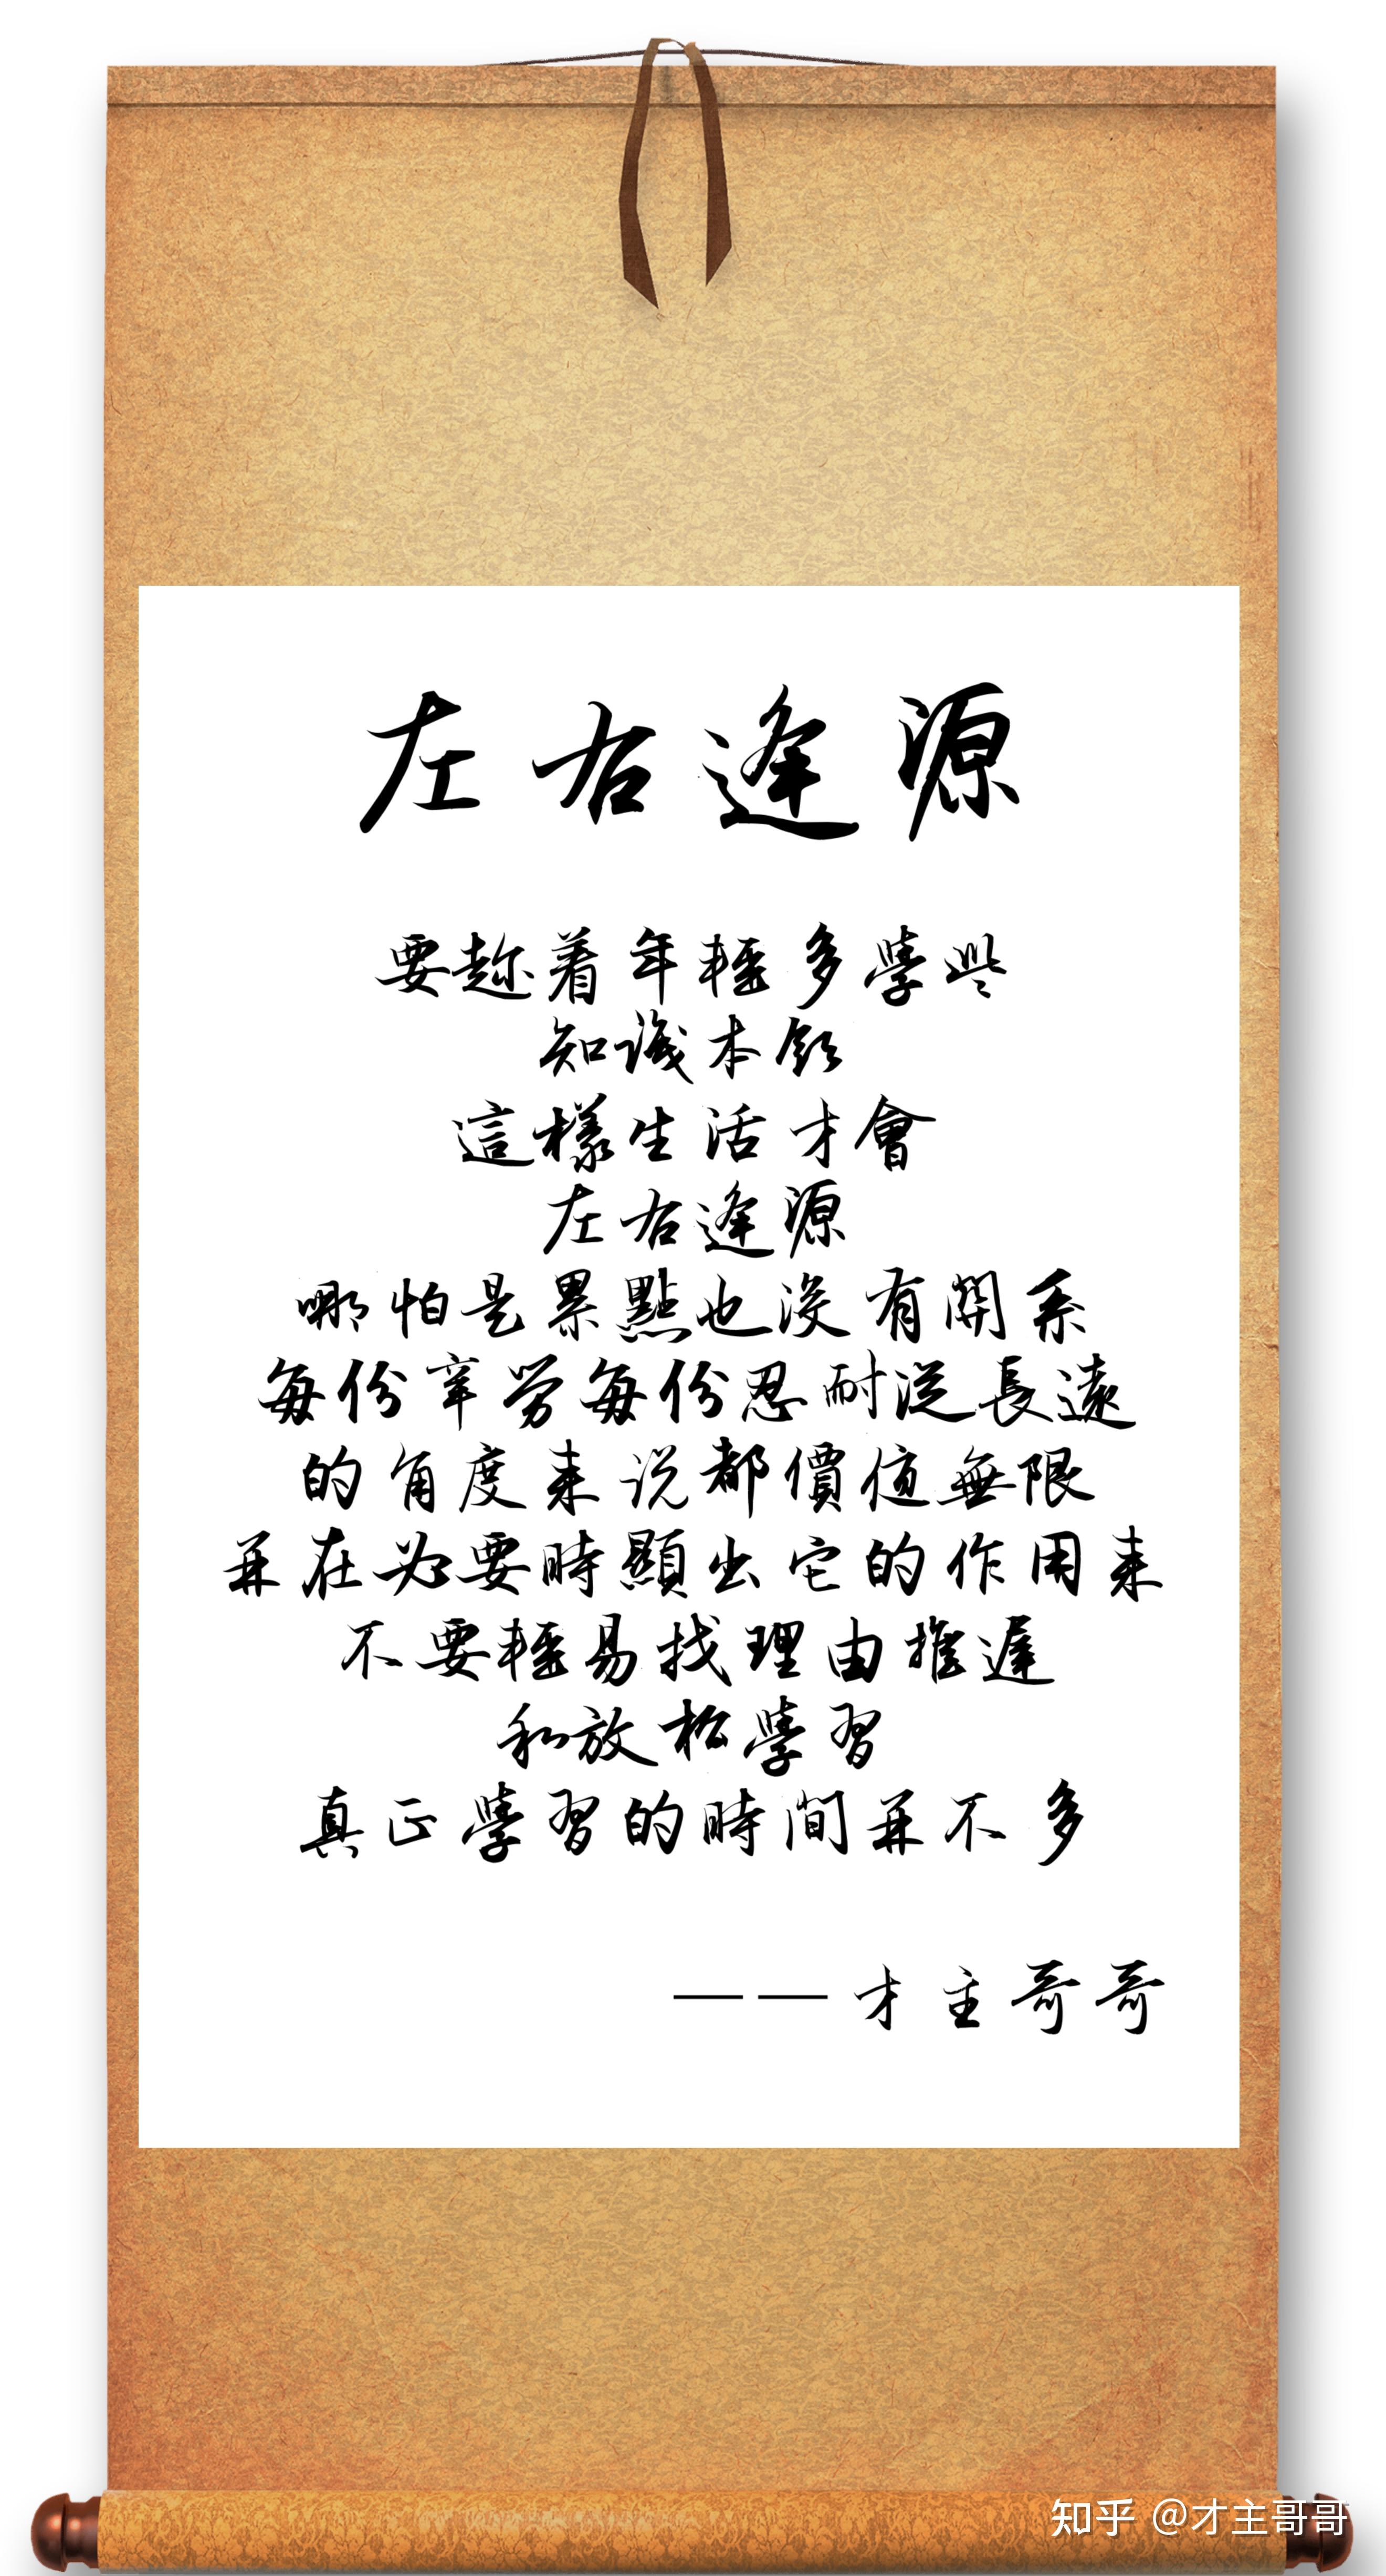 左右逢源
要趁着年輕多學些
知識本領
這樣生活才會
左右逢源
哪怕是累點也沒有關系
每份辛勞每份忍耐從長遠
的角度来说都價值無限
并在必要時顯出它的作用来
不要輕易找理由推遲
和放松學習
真正學習的時間并不多
——才主哥哥
知乎 @才主哥哥